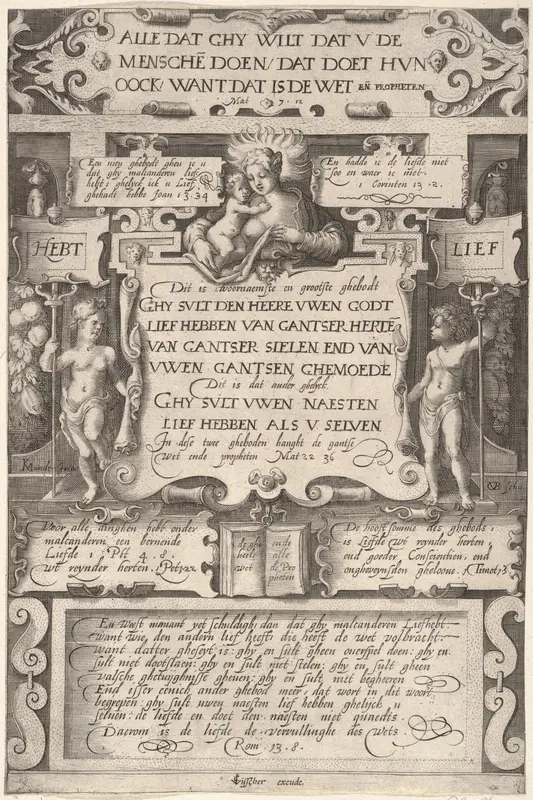 ALLE DAT GHY WILT DAT V DE
MENSCHĒ DOEN/ DAT DOET HVN
OOCK/ WANT DAT IS DE WET EÑ PROPHETEN
Mat 7. 12
Een nieu ghebodt gheve ic u
dat ghy malcanderen lief
hebt ghelyck ick u Lief
ghehadt hebbe Joan 13.34
En hadde ic de liefde niet
soo en waer ic niet
1 Corinten 13.2.
HEBT
LIEF
Dit is tvoornaemste en grootste ghebodt
GHY SVLT DEN HEERE VWEN GODT
LIEF HEBBEN VAN GANTSER HERTĒ
VAN GANTSER SIELEN END VAN
VWEN GANTSEN GHEMOEDE
Dit is dat ander ghelyck.
GHY SVLT VWEN NAESTEN
LIEF HEBBEN ALS V SELVEN
In dese twe gheboden hanght de gantse
Wet ende propheten Mat 22 36
KMander
CB
Voor alle dinghen hebt onder
malcanderen een bernende
Liefde 1 Pet 4.8.
wt reynder herten. 1 Pet 1.22
de ghe
heele
wet
ende
alle
de Pro
pheten
De hooft somme des ghebods,
is Liefde wt reynder herten,
end goeder Conscientien, end
ongheveynsden gheloove. 1 Timot 1.5
En weest niemant yet schuldigh, dan dat ghy malcanderen Liefhebt.
want wie den andern lief heeft, die heeft de wet volbracht.
want datter gheseyt is: ghy en sult gheen overspel doen: ghy en
sult niet dootslaen: ghy en sult niet stelen: ghy en sult gheen
valsche ghetuyghnisse gheven: ghy en sult niet begheeren
End isser eenich ander ghebod meer, dat wort in dit woort
begrepen: ghy sult uwen naesten lief hebben ghelyck u
selven: de liefde en doet den naesten niet quaedts.
Daerom is de liefde de vervullinghe des Wets.
Rom. 13.8.
Visscher excude.